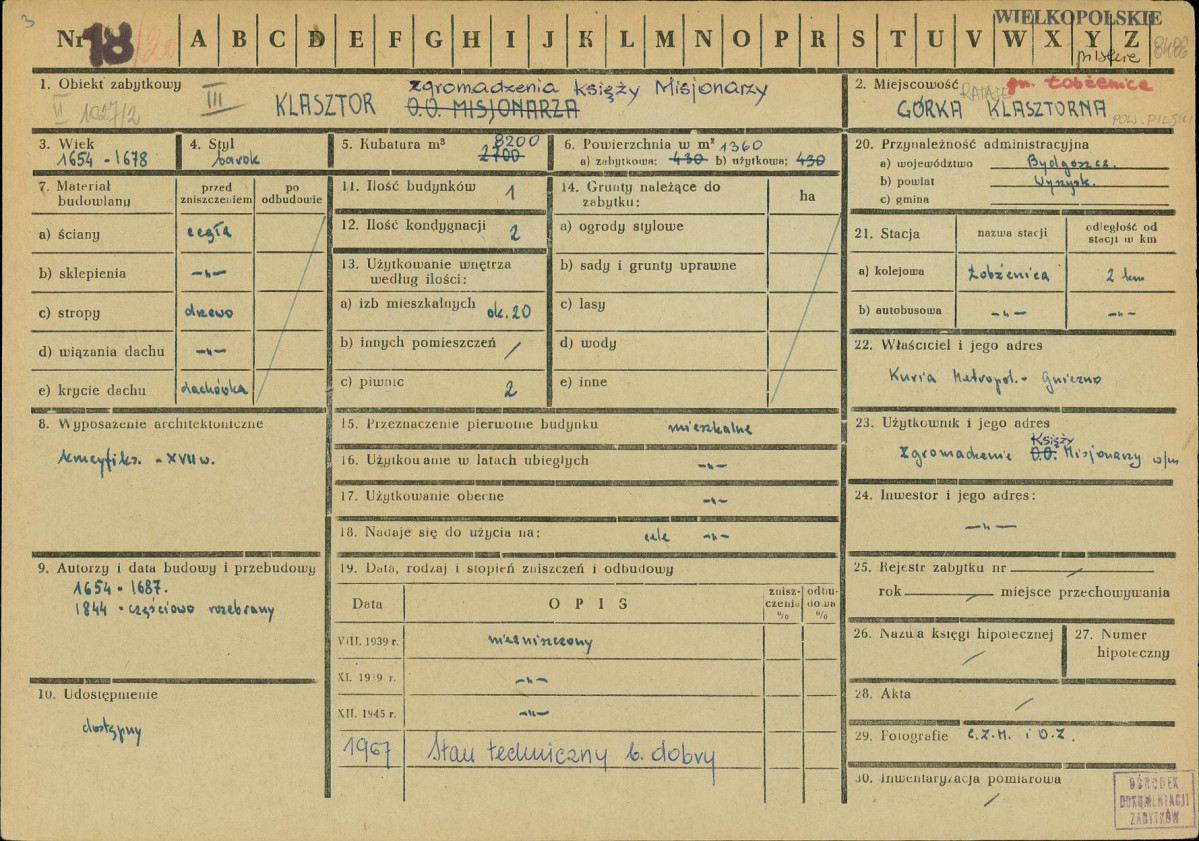 3
WIELKOPOLSKIE
Nr 18/20 A B C D E F G H I J K L M N O P R S T U V W X Y Z
pilskie
1. Obiekt zabytkowy
III
VI 1027/2
KLASZTOR
Zgromadzenia Księży Misjonarzy
O.O. MISJONARZA
2. Miejscowość
RATAJE gm. Łobżenica
GÓRKA KLASZTORNA
POW. PILSKI
3. Wiek
1654 - 1678
4. Styl
barok
5. Kubatura m³ 8200
2700
6. Powierzchnia w m² 1360
a) zabytkowa: 430 b) użytkowa: 430
7. Materiał budowlany
przed zniszczeniem
po odbudowie
a) ściany cegła
b) sklepienia -„-
c) stropy drzewo
d) wiązania dachu -„-
e) krycie dachu dachówka
8. Wyposażenie architektoniczne
krucyfiks. - XVII w.
9. Autorzy i data budowy i przebudowy
1654 - 1687.
1844 - częściowo rozebrany
10. Udostępnienie
dostępny
11. Ilość budynków 1
12. Ilość kondygnacji 2
13. Użytkowanie wnętrza
według ilości:
a) izb mieszkalnych ok. 20
b) innych pomieszczeń /
c) piwnic 2
14. Grunty należące do
zabytku:
ha
a) ogrody stylowe
b) sady i grunty uprawne
c) lasy
d) wody
e) inne
15. Przeznaczenie pierwotne budynku mieszkalne
16. Użytkowanie w latach ubiegłych -„-
17. Użytkowanie obecne -„-
18. Nadaje się do użycia na: cele -„-
19. Data, rodzaj i stopień zniszczeń i odbudowy
Data
OPIS
znisz-
czenia
%
odbu-
dowa
%
VIII. 1939 r. niezniszczony
XI. 1939 r. -„-
XII. 1945 r. -„-
1967 Stan techniczny b. dobry
20. Przynależność administracyjna
a) województwo Bydgoszcz.
b) powiat Wyrzysk.
c) gmina
21. Stacja
nazwa stacji
odległość od
stacji w km
a) kolejowa Łobżenica 2 km
b) autobusowa -„- -„-
22. Właściciel i jego adres
Kuria Metropol. - Gniezno
23. Użytkownik i jego adres
Księży
Zgromadzenie O.O. Misjonarzy w/m
24. Inwestor i jego adres:
-„-
25. Rejestr zabytku nr /
rok / miejsce przechowywania
26. Nazwa księgi hipotecznej
/
27. Numer
hipoteczny
28. Akta /
29. Fotografie C.Z.M. i O.Z.
30. Inwentaryzacja pomiarowa
/
OŚRODEK
DOKUMENTACJI
ZABYTKÓW